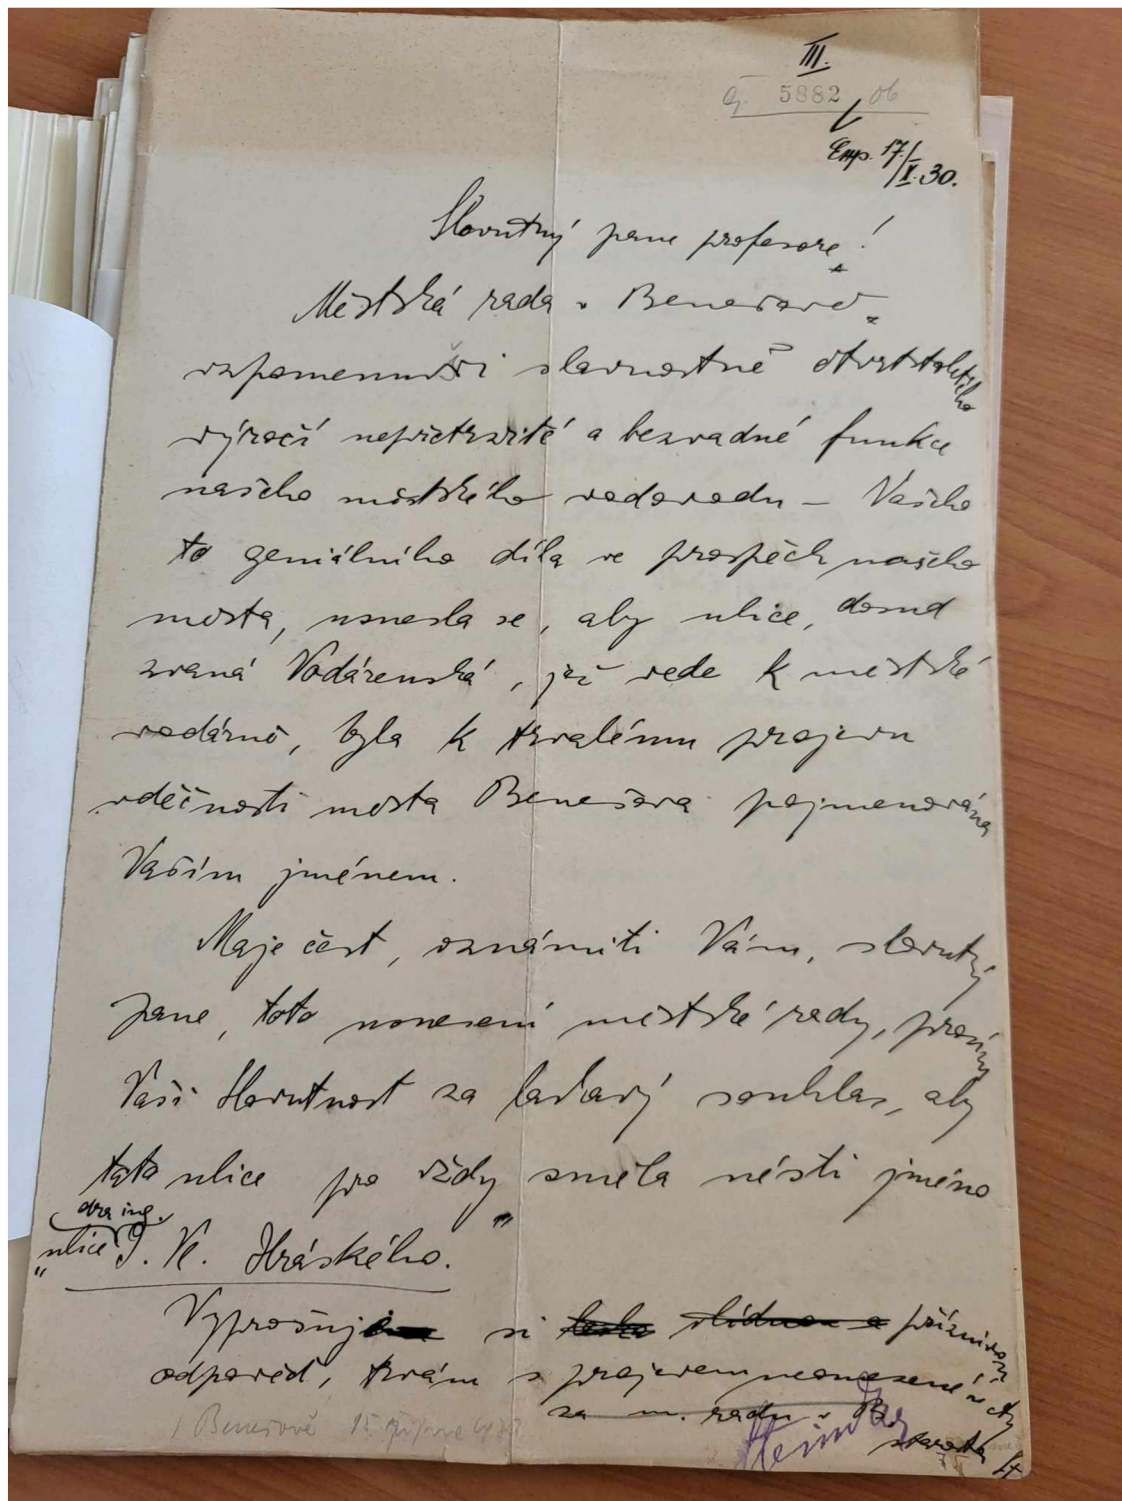 III.
Čj. 5882/06
Exp. 17./X.30.
Slovutný pane profesore!
Městská rada v Benešově
vzpomenuvši slavnostně čtvrtstoletého
výročí nepřetržité a bezvadné funkce
našeho městského vodovodu – Vašeho
to geniálního díla ve prospěch našeho
města, usnesla se, aby ulice, dosud
zvaná Vodárenská, jež vede k městské
vodárně, byla k trvalému projevu
vděčnosti města Benešova pojmenována
Vaším jménem.
Maje čest, oznámiti Vám, slovutný
pane, toto usnesení městské rady, prosím
Vaši Slovutnost za laskavý souhlas, aby
tato ulice pro vždy směla nésti jméno
dra ing.
„ulice J. V. Hráského."
Vyprošuji si příznivou
odpověď, trvám s projevem neomezené úcty
za m. radu v B.
starosta
V Benešově 15. října